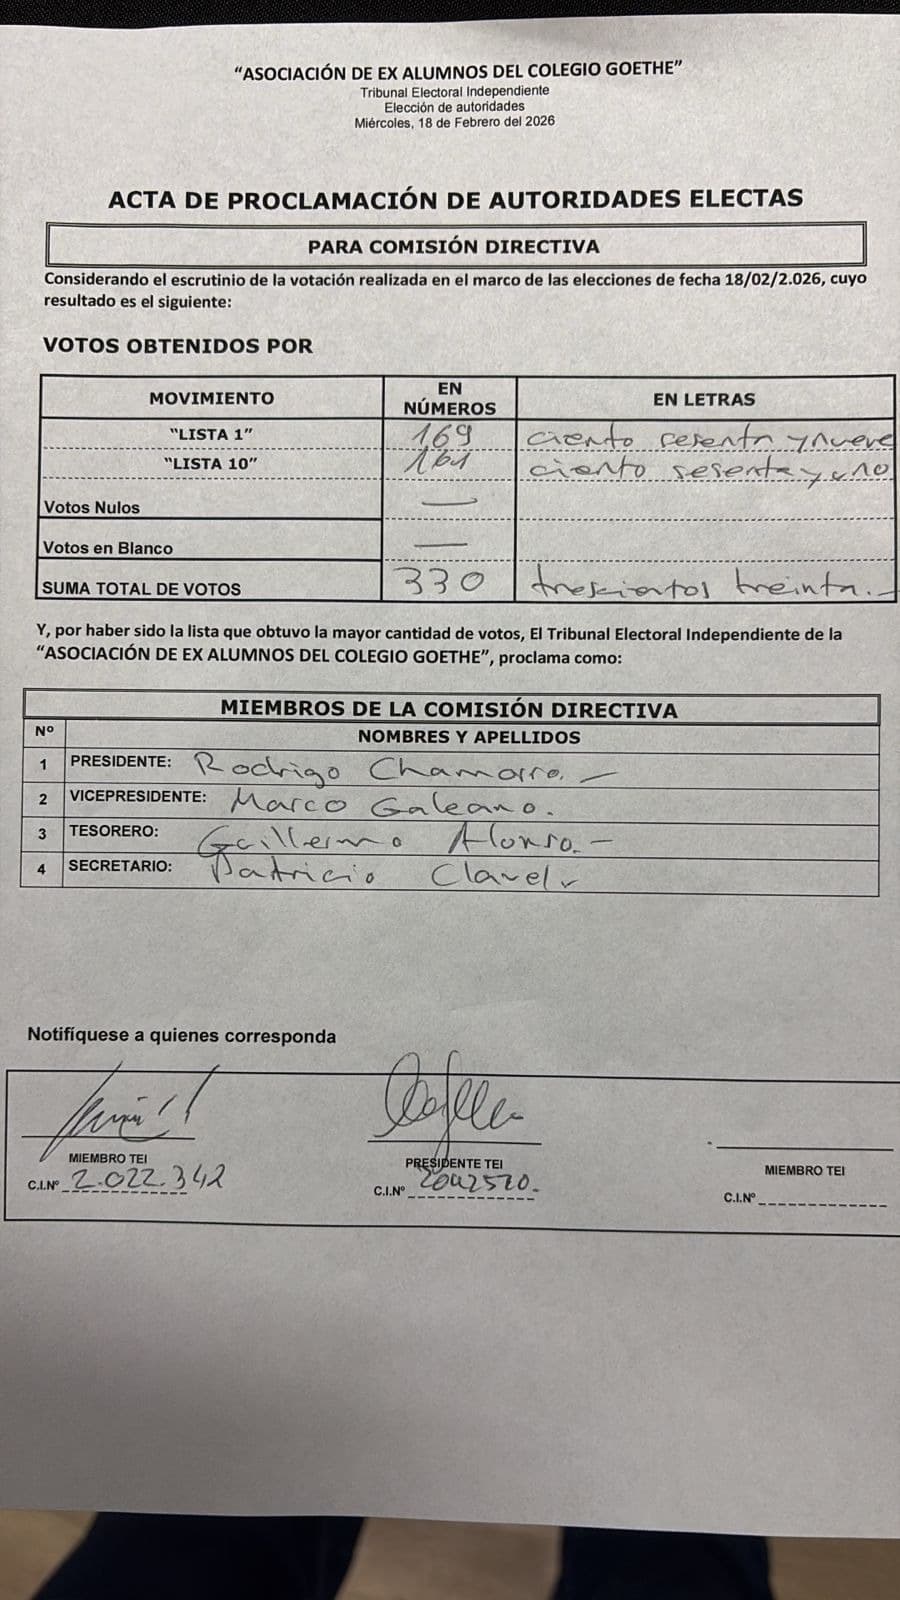 “ASOCIACIÓN DE EX ALUMNOS DEL COLEGIO GOETHE”
Tribunal Electoral Independiente
Elección de autoridades
Miércoles, 18 de Febrero del 2026
ACTA DE PROCLAMACIÓN DE AUTORIDADES ELECTAS
PARA COMISIÓN DIRECTIVA
Considerando el escrutinio de la votación realizada en el marco de las elecciones de fecha 18/02/2.026, cuyo
resultado es el siguiente:
VOTOS OBTENIDOS POR
MOVIMIENTO EN NÚMEROS EN LETRAS
“LISTA 1” 169 ciento sesenta y nueve
“LISTA 10” 161 ciento sesenta y uno
Votos Nulos —
Votos en Blanco —
SUMA TOTAL DE VOTOS 330 trescientos treinta.-
Y, por haber sido la lista que obtuvo la mayor cantidad de votos, El Tribunal Electoral Independiente de la
“ASOCIACIÓN DE EX ALUMNOS DEL COLEGIO GOETHE”, proclama como:
MIEMBROS DE LA COMISIÓN DIRECTIVA
Nº NOMBRES Y APELLIDOS
1 PRESIDENTE: Rodrigo Chamorro. -
2 VICEPRESIDENTE: Marco Galeano.
3 TESORERO: Guillermo Alonso. -
4 SECRETARIO: Patricio Clavel
Notifíquese a quienes corresponda
MIEMBRO TEI PRESIDENTE TEI MIEMBRO TEI
C.I.Nº 2.022.342 C.I.Nº 2042520.- C.I.Nº